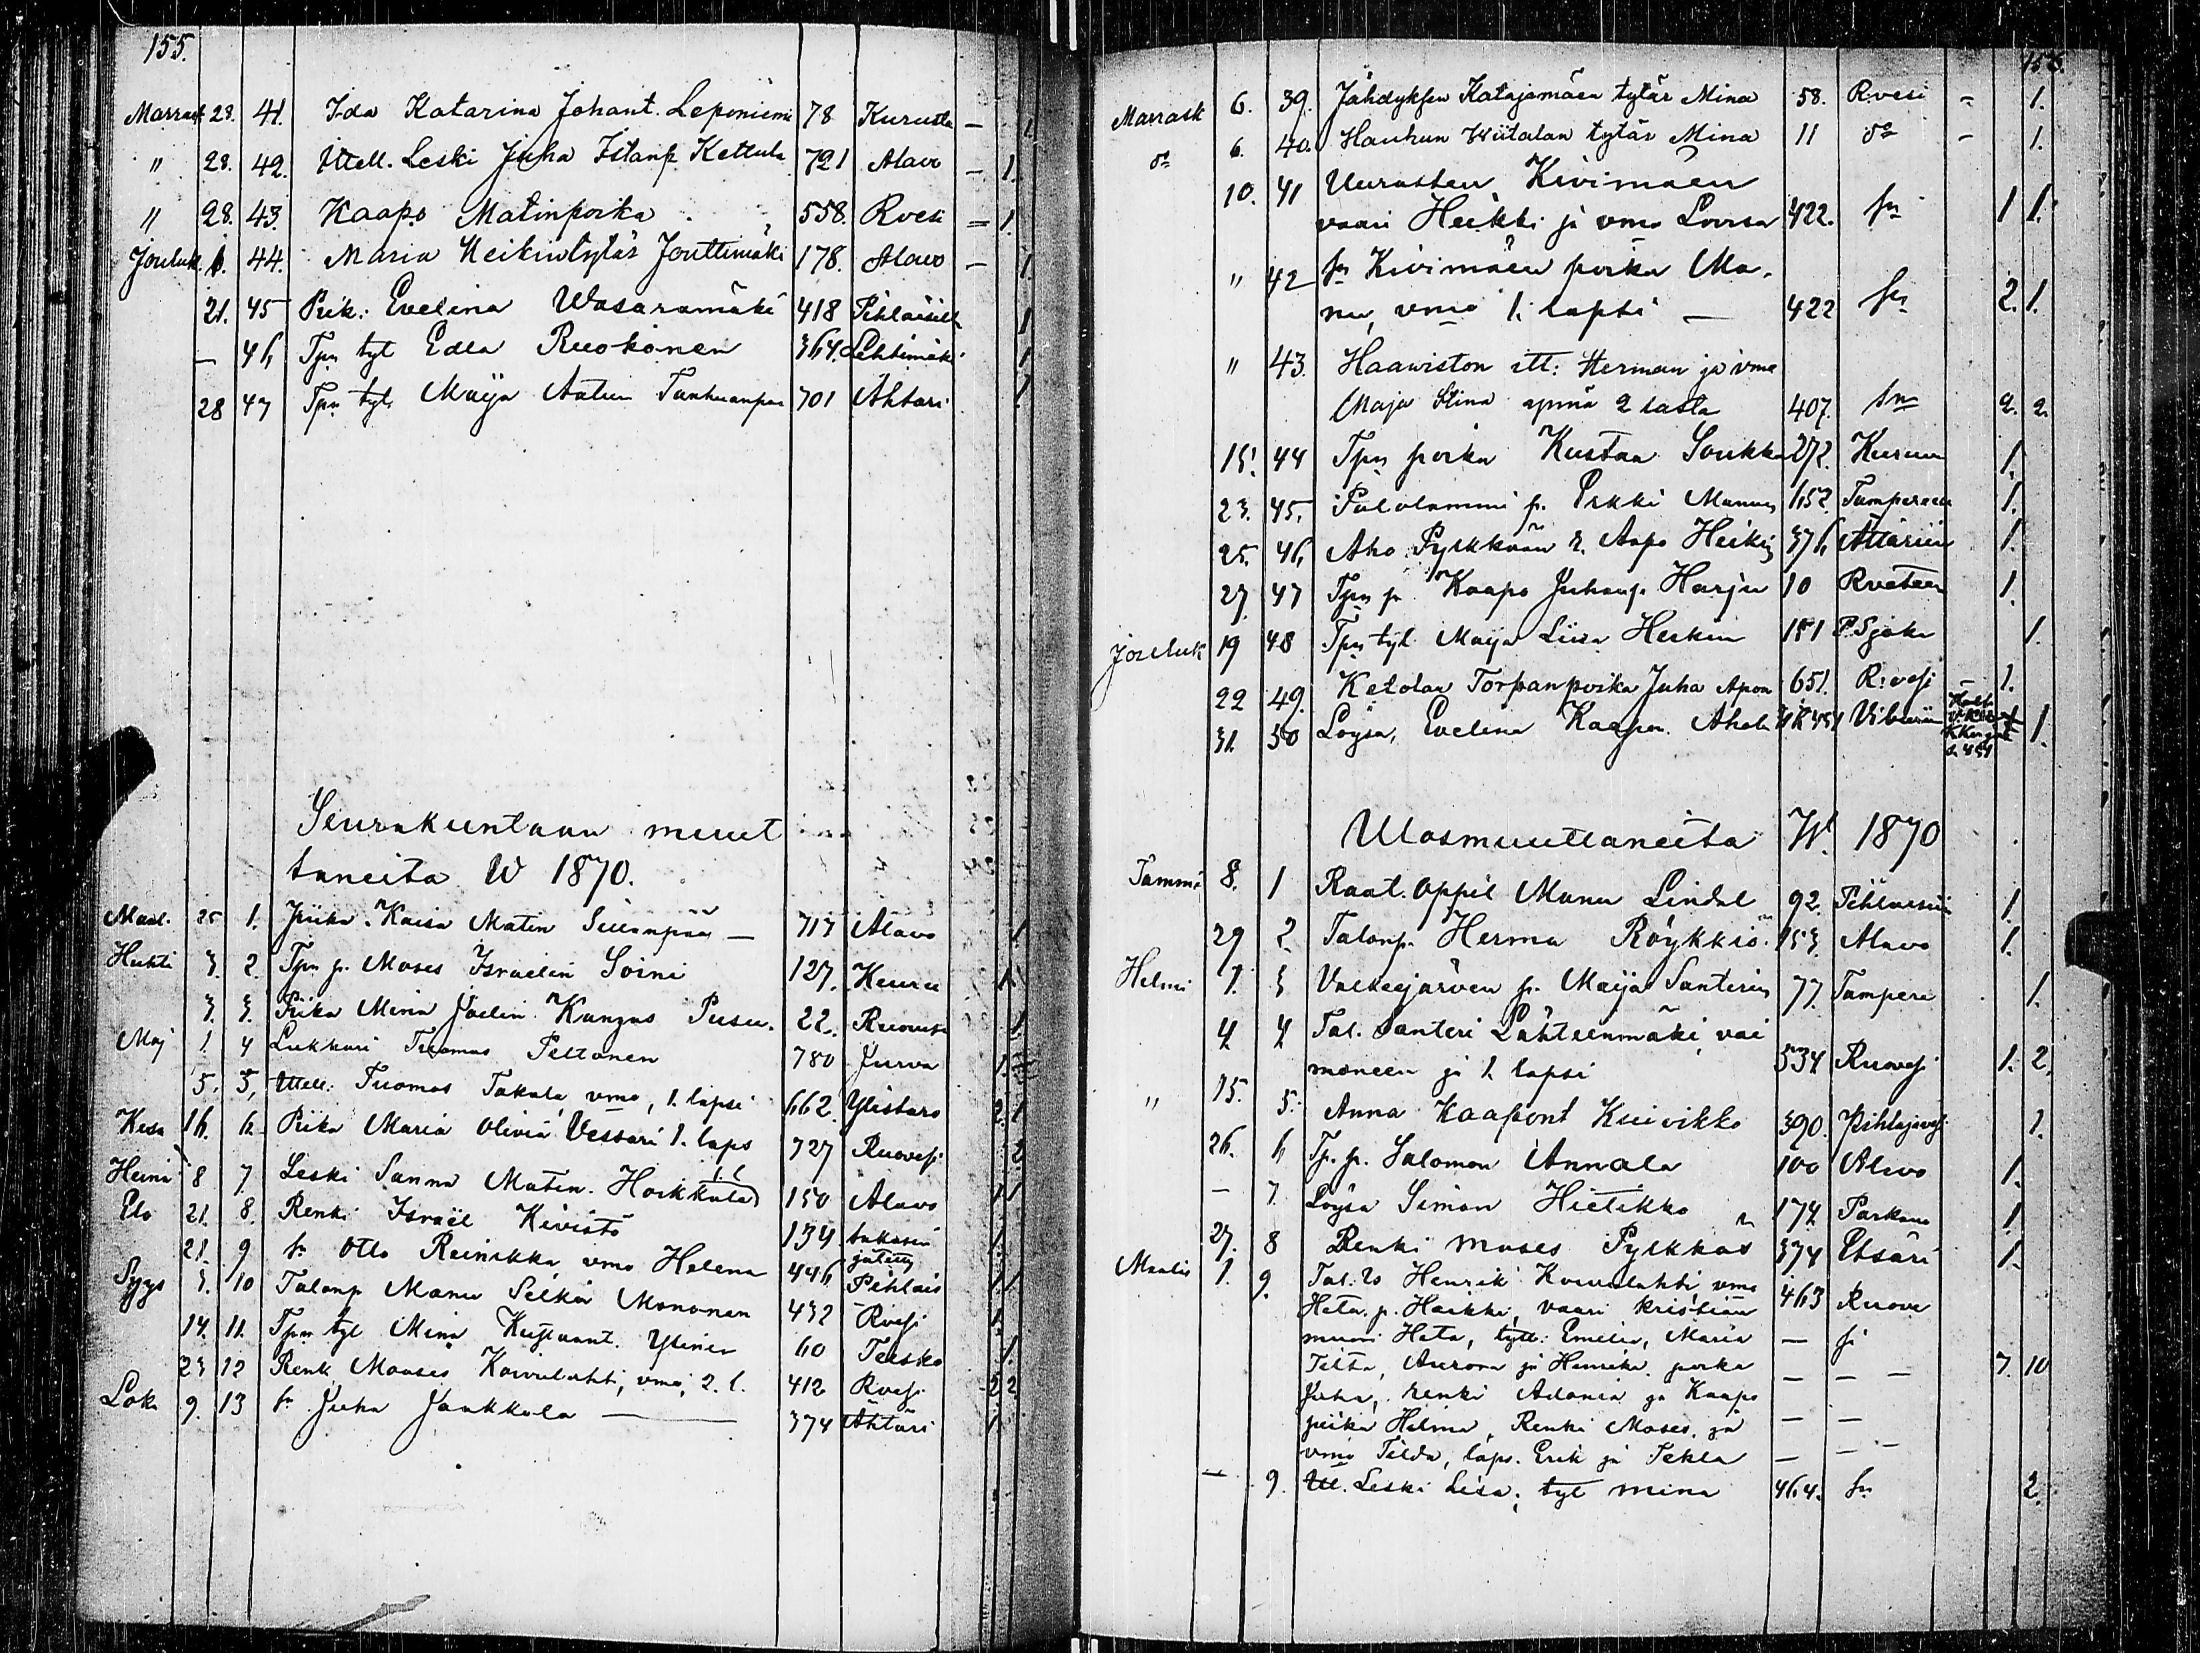 155.
Marrask 28. 41. Ida Katarina Johant. Leponiemi 78 Kurusta — 1.
" 28. 42. Itell. Leski Juha Istanp. Kettula 721 Alavo — 1.
" 28. 43. Kaapo Matinpoika 558. Rvesi — 1.
Jouluk. 6. 44. Maria Heikintytär Jouttimäki 178. Alavo — 1.
21. 45 Piik: Evelina Wasaramäki 418 1
— 46 Tpn tyt Edla Ruokonen 364. Lehtimäki 1
28 47 Tpn tyt. Maija Antin 701 Ähtäri 1
Seurakuntaan muut
taneita W 1870.
Maal. 25 1. Piika Kaisa Matin — 717 Alavo 1
Huhti 3. 2. Tpn p. Moses Israelin Soini 127. Keuru 1.
3. 3. Piika Mina Joelin Kangas 22. 1
Maj 1 4 Lukkari Tuomas Peltonen 780 Jurva 1.
5. 5. Itell: Tuomas Takala vmo, 1. lapsi 662. Ylistaro 2. 1
Kesä 16. 6. Piika Maria Olivia Vessari 1. laps 727 Ruovesi 2
Heinä 8 7 Leski Sanna Matin. Hoikkala 1. l. 150 Alavo 1 1
Elo 21. 8. Renki Israël Kivistö 134 1.
21. 9 sn Otto Reinikka vmo Helena 446 Pihlais 1 1
Syys 3. 10 Talonp Manu Selkä Mononen 432 Rvesi 1.
14. 11. Tpn tyt Mina Kustaant. Ylinen 60 Teisko 1.
23 12 Renk Mooses Koivulahti, vmo, 2. l. 412 Rvesi 2 2
Loka 9. 13 sn Juha Jaakkola — 374 Ähtäri 1
156.
Marrask 6. 39. Jähdyksen Katajamäen tytär Mina 58. Rvesi - 1.
do 6. 40. Hauhun Wiitalan tytär Mina 11 do - 1.
10. 41 Uurasten Kivimäen
vaari Heikki ja vmo Lovisa 422. sn 1 1.
" 42 sn Kivimäen poika Ma-
nu, vmo 1. lapsi — 422 sn 2. 1.
" 43. Haawiston itt: Herman ja vmo
Maja Stina apinä 2 lasta 407. sn 2. 2.
15. 44 Tpn poika Kustaa Soukka 272. Kuruun 1.
23. 45. Palolammi p. Erkki Manun 152. Tampereelle 1.
25. 46 Aho Pylkkään r. Aapo Heikin 376 Ätäriin 1.
27. 47 Tpn p Kaapo Juhanp. Harju 10 Rveteen 1.
Jouluk 19 48 Tpn tyt Maija Liisa Heikin 151 P.Sjoki 1.
22 49. Ketolan Torpanpoika Juha Apon 651. R:vesi 1.
31. 50 Löysä, Evelina Kaapon. Ahola 1.
Ulosmuuttaneita W. 1870
Tammi 8. 1 Raat. oppil Manu Lindal 92. 1.
29 2. Talonp. Herma Röykkiö 153. Alavo 1.
Helmi 1. 3 Valkeejärven p. Maija Santerin 77. Tampere 1.
4 4 Tal. Santeri Lähteenmäki, vai
moneen ja 1. lapsi 534 Ruovesi 1. 2.
" 15. 5. Anna Kaapont Kuivikko 390. Pihlajavesi 1.
26. 6 Tp. p. Salomon Annala 100 Alavo 1.
— 7. Löysä Simon Hietikko 174 Parkano 1
27. 8 Renki Moses Pylkkäs 374 Etsäri 1.
Maalis 1. 9. Tal. Henrik Koivulahti, vmo
Heta. p. Haikki, vaari Kristian 463 Ruove
muori Heta, tytt: Emelia, Maria — si
Tilta, Aurora ja Henrika, poika — — — 7. 10
Juha, renki Adonia ja Kaapo
piika Helma, Renki Moses, ja — —
vmo Tilda, laps. Erik ja Tekla — — —
— 9. Itl. Leski Lisa, tyt Mina 464. sn 2.